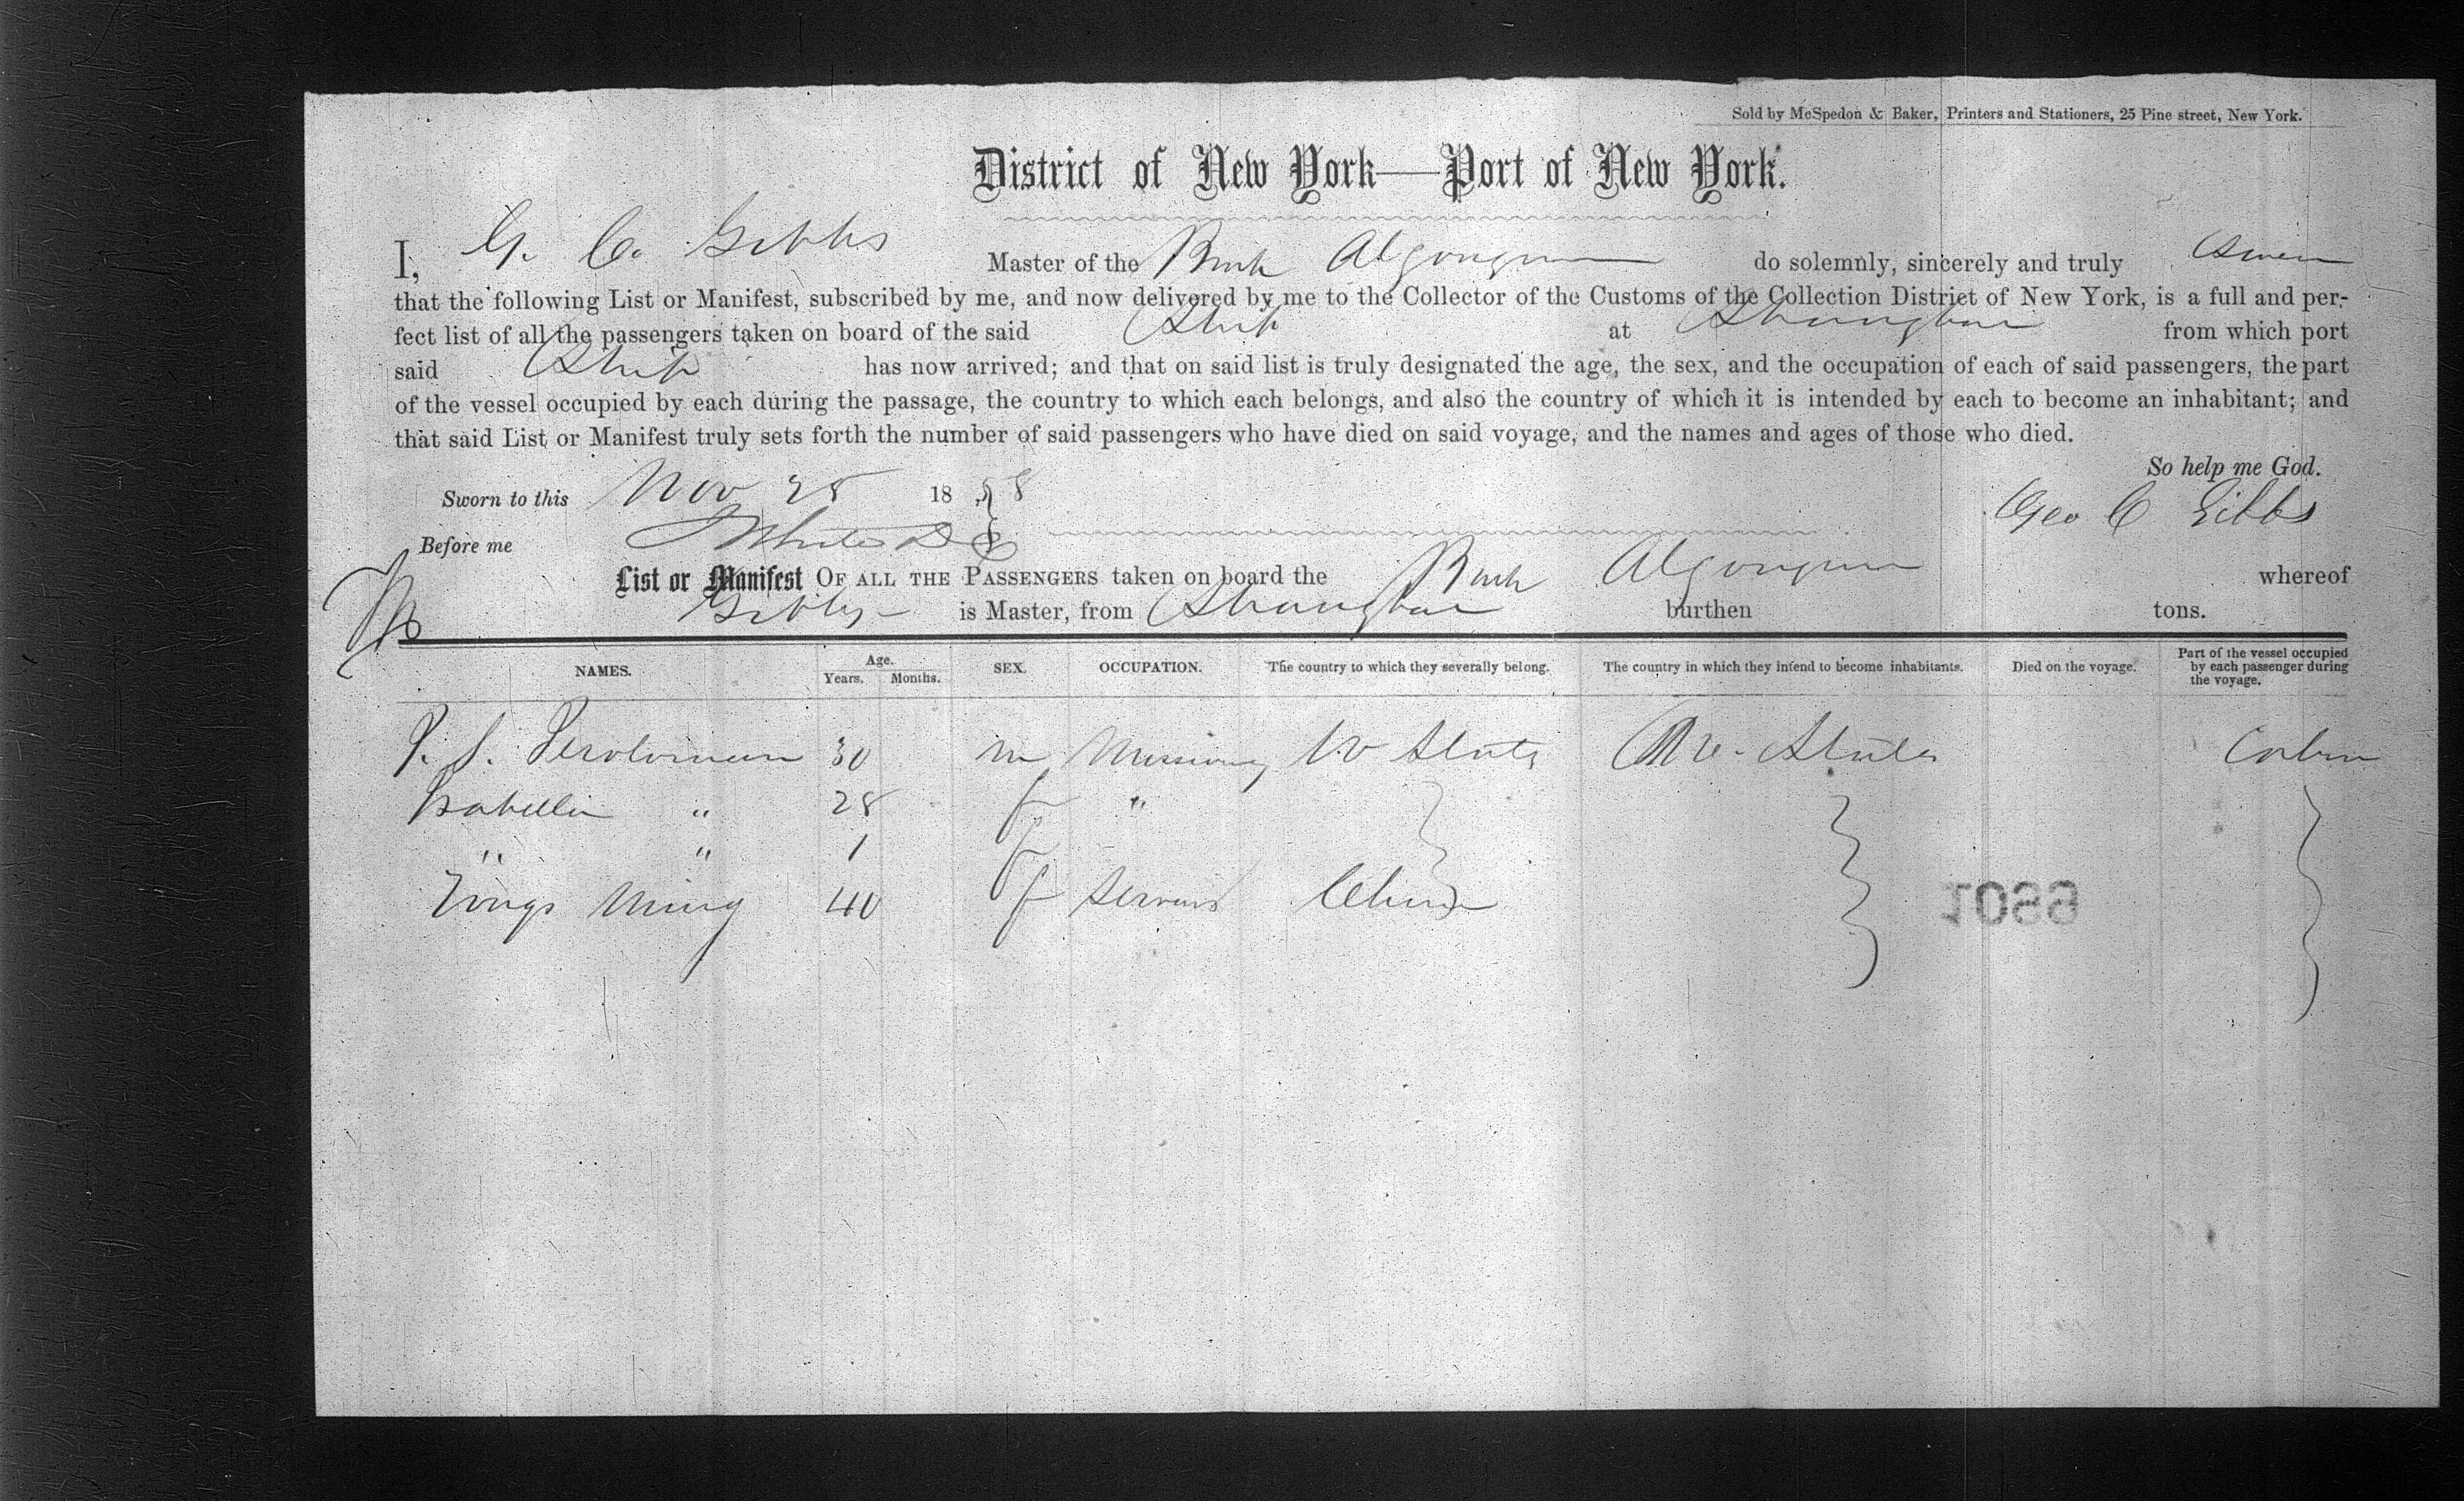 Sold by McSpedon & Baker, Printers and Stationers, 25 Pine street, New York.
District of New York—Port of New York.
I, G. C. Gibbs Master of the Bark Algonquin do solemnly, sincerely and truly swear
that the following List or Manifest, subscribed by me, and now delivered by me to the Collector of the Customs of the Collection District of New York, is a full and per-
fect list of all the passengers taken on board of the said Ship at Shanghai from which port
said Ship has now arrived; and that on said list is truly designated the age, the sex, and the occupation of each of said passengers, the part
of the vessel occupied by each during the passage, the country to which each belongs, and also the country of which it is intended by each to become an inhabitant; and
that said List or Manifest truly sets forth the number of said passengers who have died on said voyage, and the names and ages of those who died.
So help me God.
Sworn to this Nov 25 1858 Geo C Gibbs
Before me
List or Manifest OF ALL THE PASSENGERS taken on board the Bark Algonquin whereof
Gibbs is Master, from Shanghai burthen tons.
NAMES. Age. Years. Months. SEX. OCCUPATION. The country to which they severally belong. The country in which they intend to become inhabitants. Died on the voyage. Part of the vessel occupied by each passenger during the voyage.
30 m Missionary U States U. States Cabin
Isabella " 28 f "
" " 1 f
Ming 40 f Servant China
1099